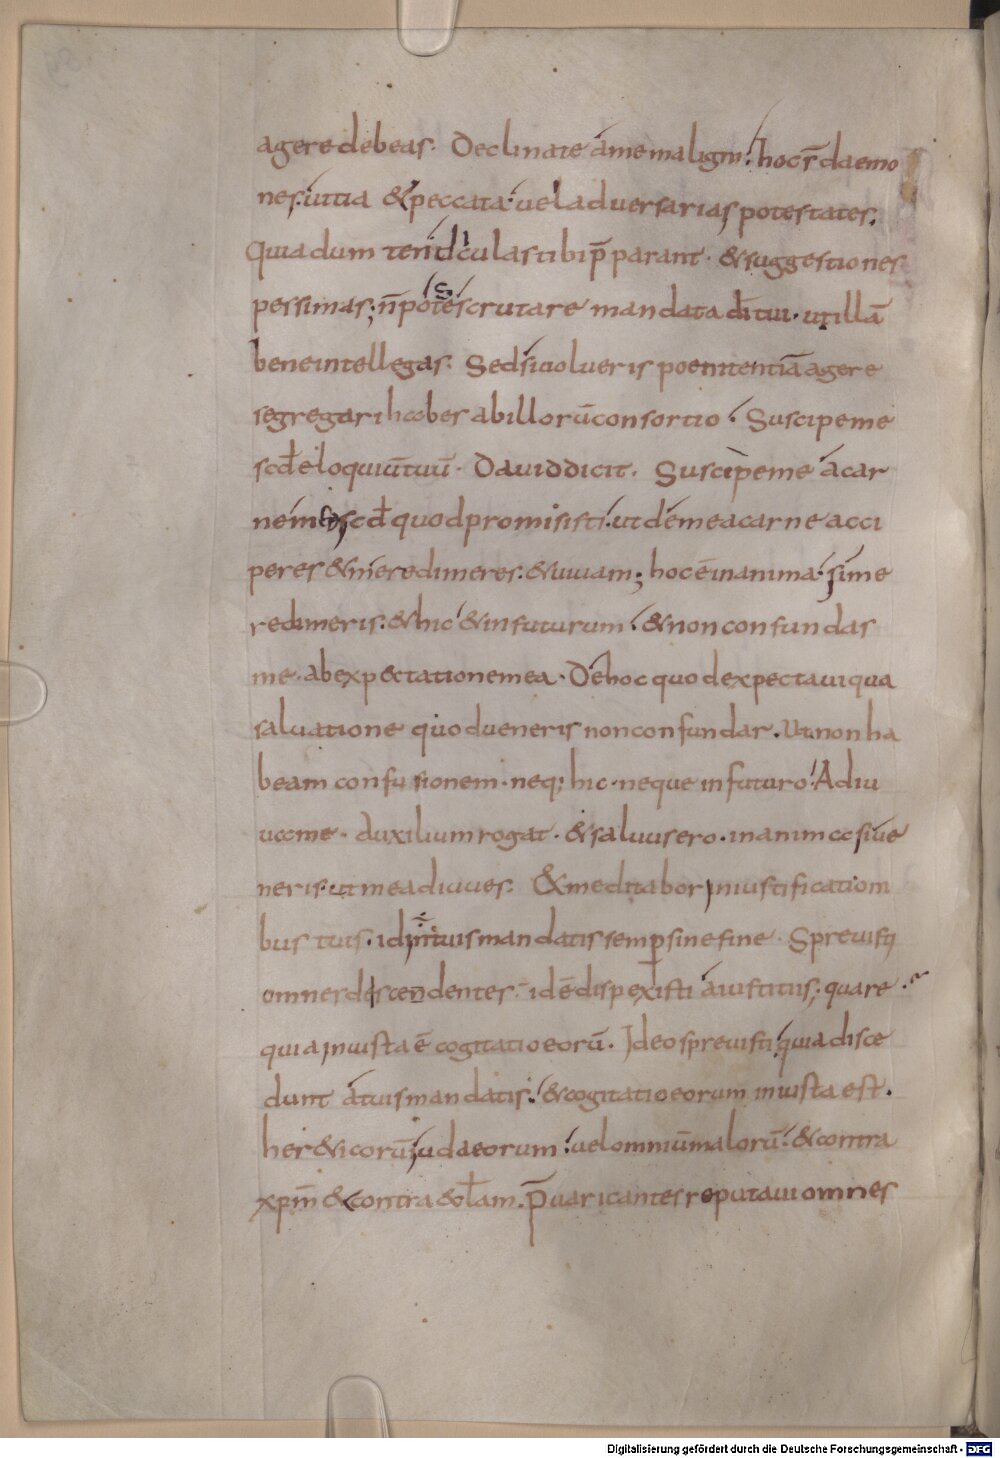 agere debeas. Declinate a me maligni. hoc ē daemo
nes. uitia & peccata. uel aduersarias potestates.
Quia dum tendiculas tibi p̄parant. & suggestiones
pessimas; n̄ potes scrutare mandata dī tui. ut illā
bene intellegas. Sed si uolueris poenitentiā agere
segregari habes ab illorū consortio. Suscipe me
scd̄ eloquiū tuū. Dauid dicit. Suscipe me a car
ne scd̄ quod promisisti. ut de mea carne acci
peres & me redimeres. & uiuam; hoc ē in anima. si me
redimeris. & hic & in futurum. & non confundas
me. ab expectatione mea. De hoc quod expectaui qua
saluatione quod ueneris non confundar. Ut non ha
beam confusionem. neq; hic. neque in futuro. Adiu
ua me. auxilium rogat. & saluus ero. in anima si ue
neris ut me adiuues. & meditabor in iustificationi
bus tuis. id in tuis mandatis semper sine fine. Spreuisti
omnes discendentes. id ē dispexisti a iustitiis; quare.
quia iniusta ē cogitatio eorū. Ideo spreuisti quia disce
dunt a tuis mandatis. & cogitatio eorum iniusta est.
her&icorū iudaeorum. uel omniū malorū. & contra
xpm̄ & contra eccl̄am. p̄uaricantes reputaui omnes
Digitalisierung gefördert durch die Deutsche Forschungsgemeinschaft - DFG